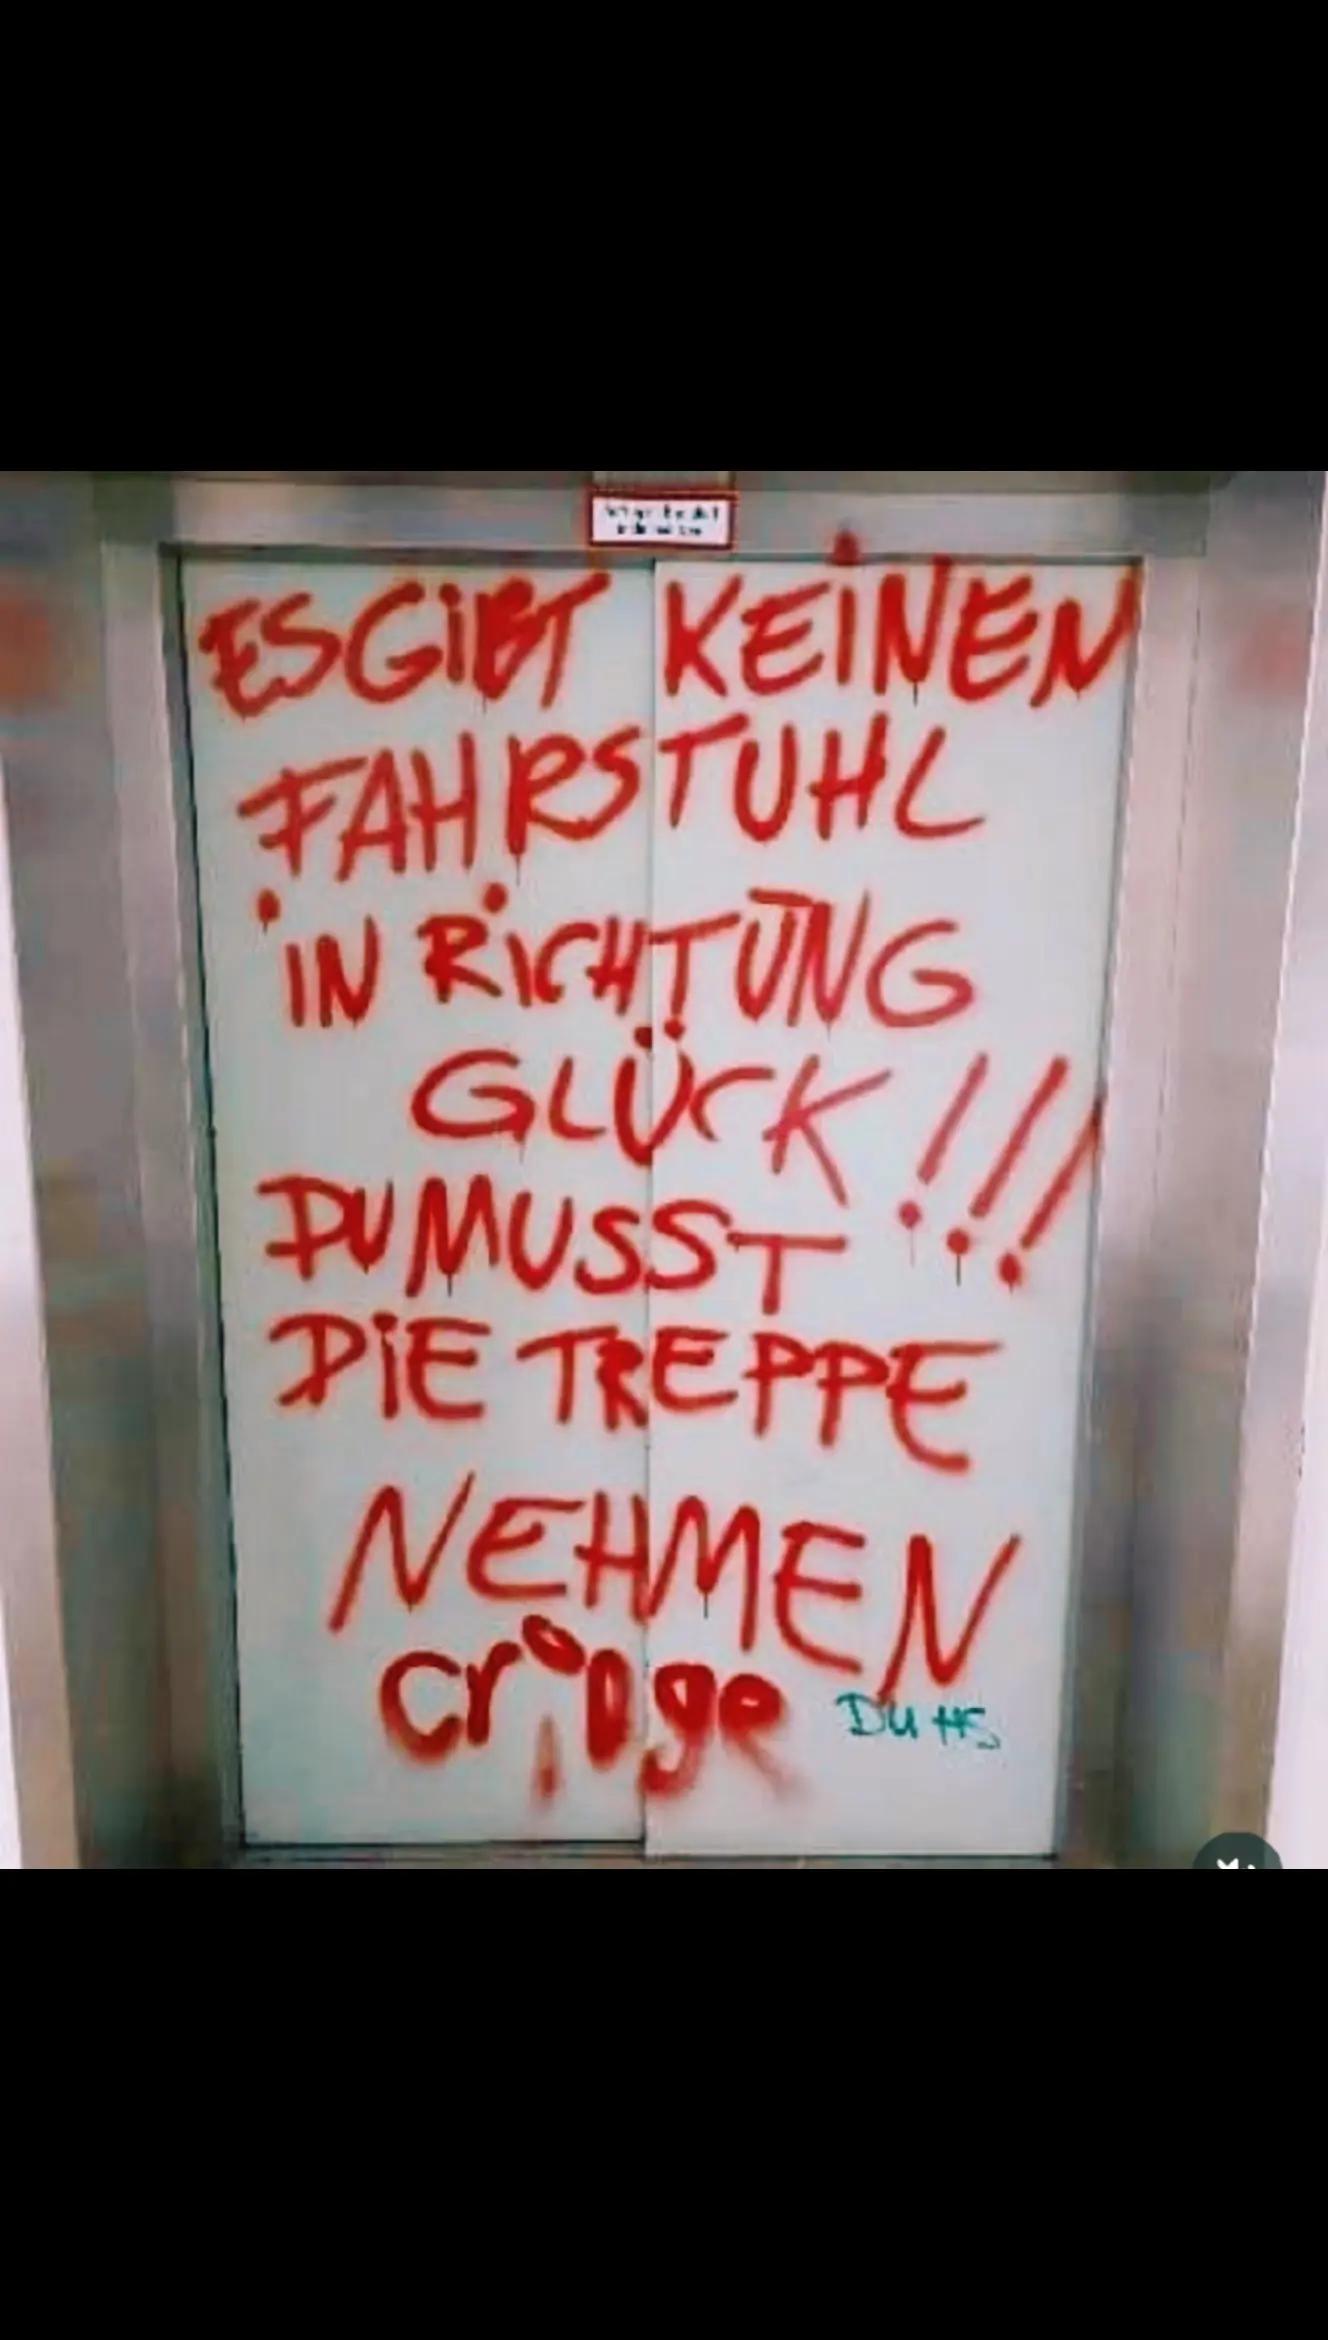 ES GIBT KEINEN
FAHRSTUHL
IN RICHTUNG
GLÜCK!!!
DU MUSST
DIE TREPPE
NEHMEN
cringe
DU HS